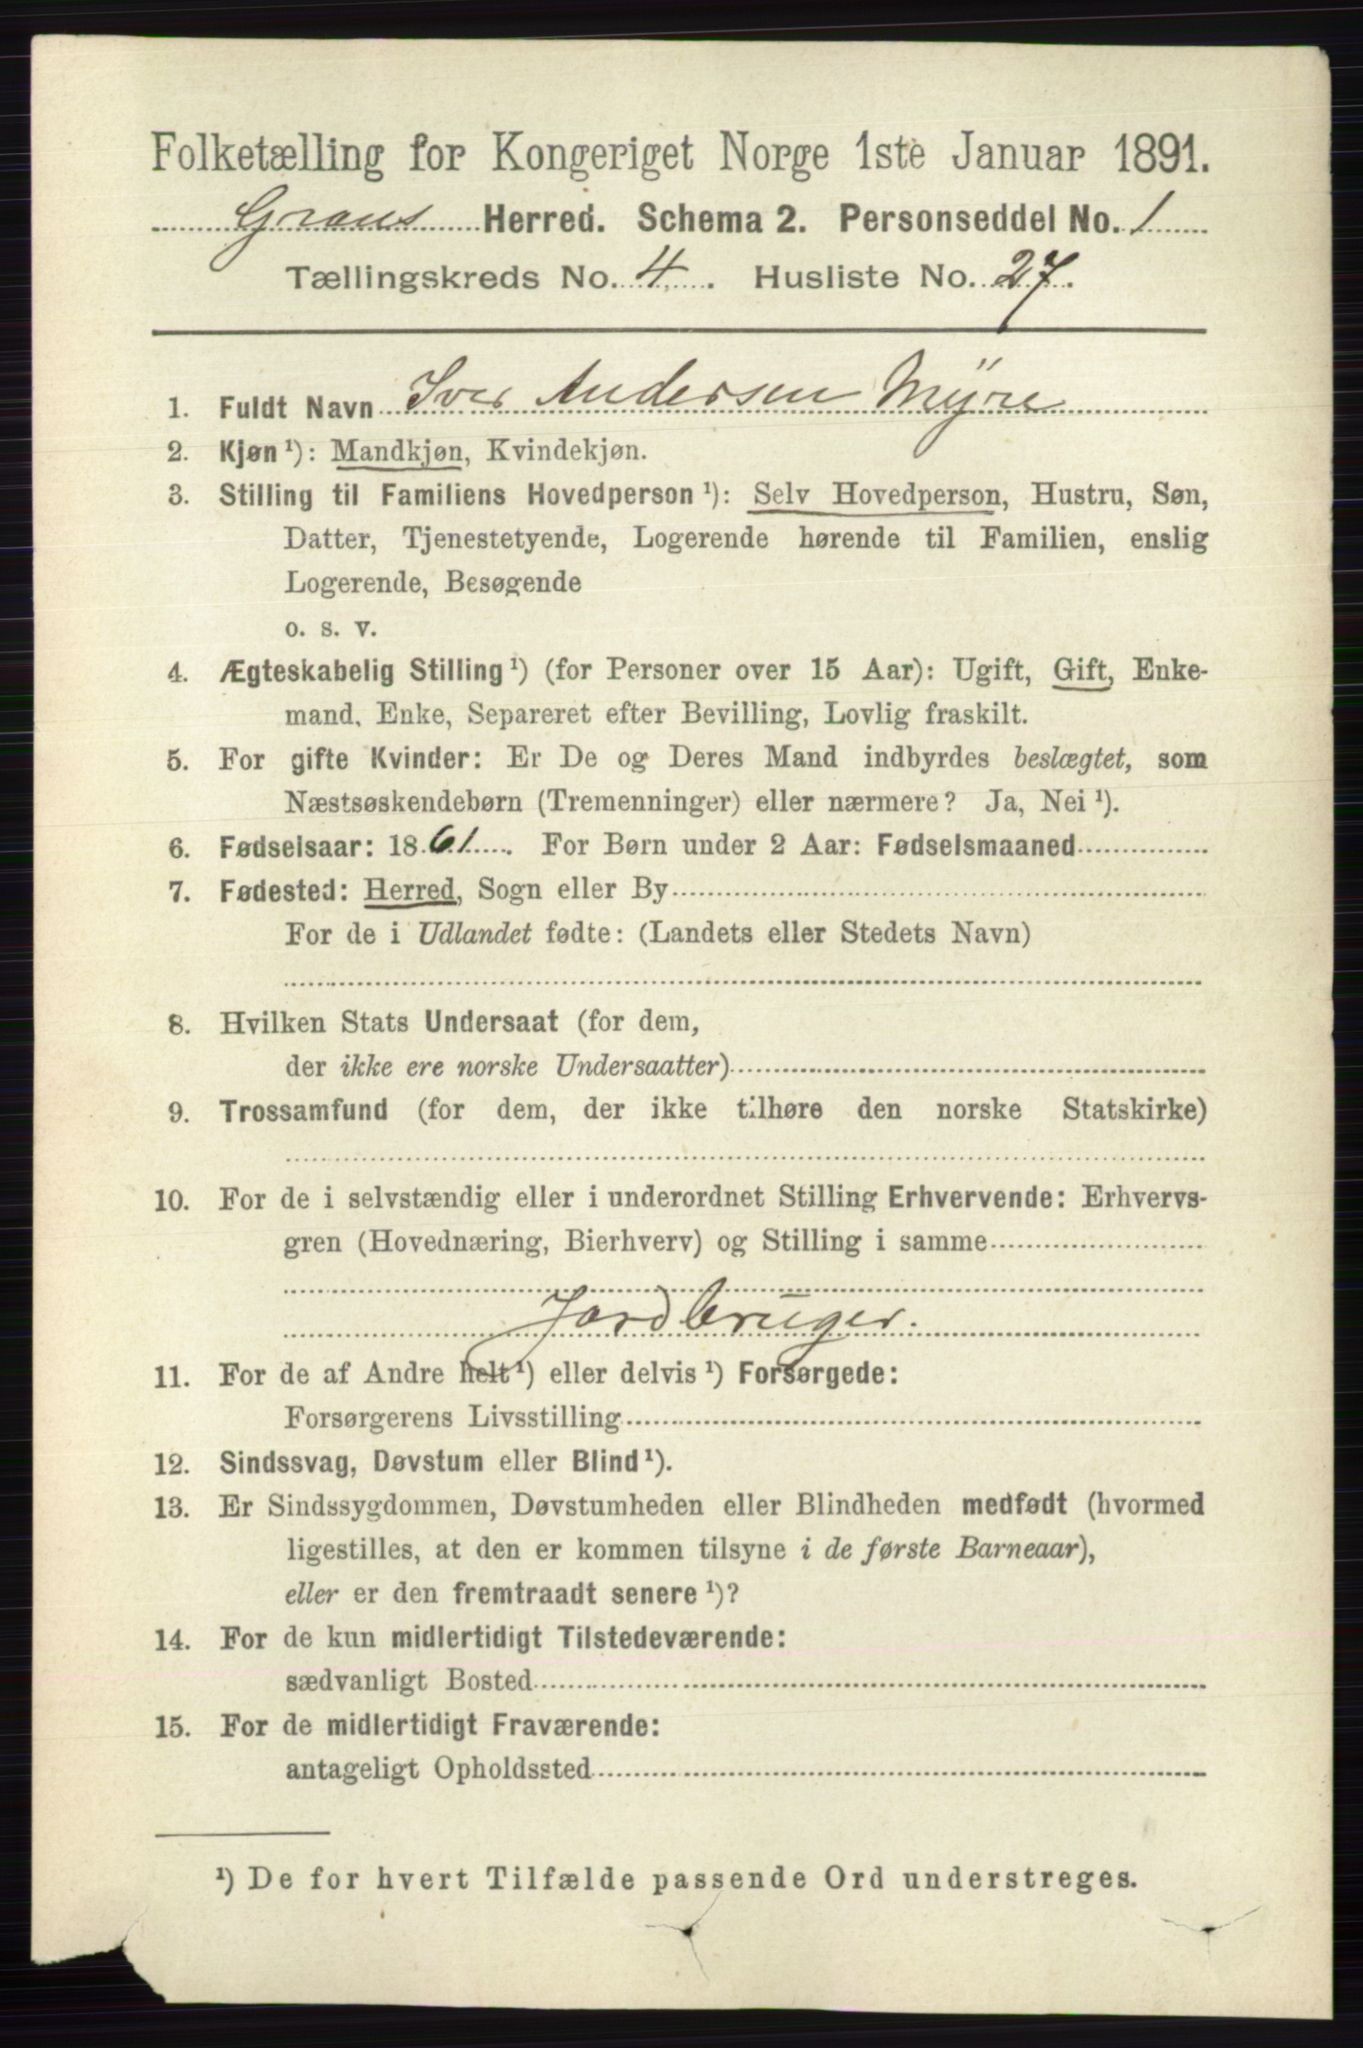 Folketælling for Kongeriget Norge 1ste Januar 1891.
Grans Herred. Schema 2. Personseddel No. 1
Tællingskreds No. 4. Husliste No. 27.
1. Fuldt Navn Iver Andersen Myre
2. Kjøn ¹): Mandkjøn, Kvindekjøn.
3. Stilling til Familiens Hovedperson ¹): Selv Hovedperson, Hustru, Søn,
Datter, Tjenestetyende, Logerende hørende til Familien, enslig
Logerende, Besøgende
o. s. v.
4. Ægteskabelig Stilling ¹) (for Personer over 15 Aar): Ugift, Gift, Enke-
mand, Enke, Separeret efter Bevilling, Lovlig fraskilt.
5. For gifte Kvinder: Er De og Deres Mand indbyrdes beslægtet, som
Næstsøskendebørn (Tremenninger) eller nærmere? Ja, Nei ¹).
6. Fødselsaar: 1861. For Børn under 2 Aar: Fødselsmaaned
7. Fødested: Herred, Sogn eller By
For de i Udlandet fødte: (Landets eller Stedets Navn)
8. Hvilken Stats Undersaat (for dem,
der ikke ere norske Undersaatter)
9. Trossamfund (for dem, der ikke tilhøre den norske Statskirke)
10. For de i selvstændig eller i underordnet Stilling Erhvervende: Erhvervs-
gren (Hovednæring, Bierhverv) og Stilling i samme
Jordbruger.
11. For de af Andre helt ¹) eller delvis ¹) Forsørgede:
Forsørgerens Livsstilling
12. Sindssvag, Døvstum eller Blind ¹).
13. Er Sindssygdommen, Døvstumheden eller Blindheden medfødt (hvormed
ligestilles, at den er kommen tilsyne i de første Barneaar),
eller er den fremtraadt senere ¹)?
14. For de kun midlertidigt Tilstedeværende:
sædvanligt Bosted
15. For de midlertidigt Fraværende:
antageligt Opholdssted
¹) De for hvert Tilfælde passende Ord understreges.